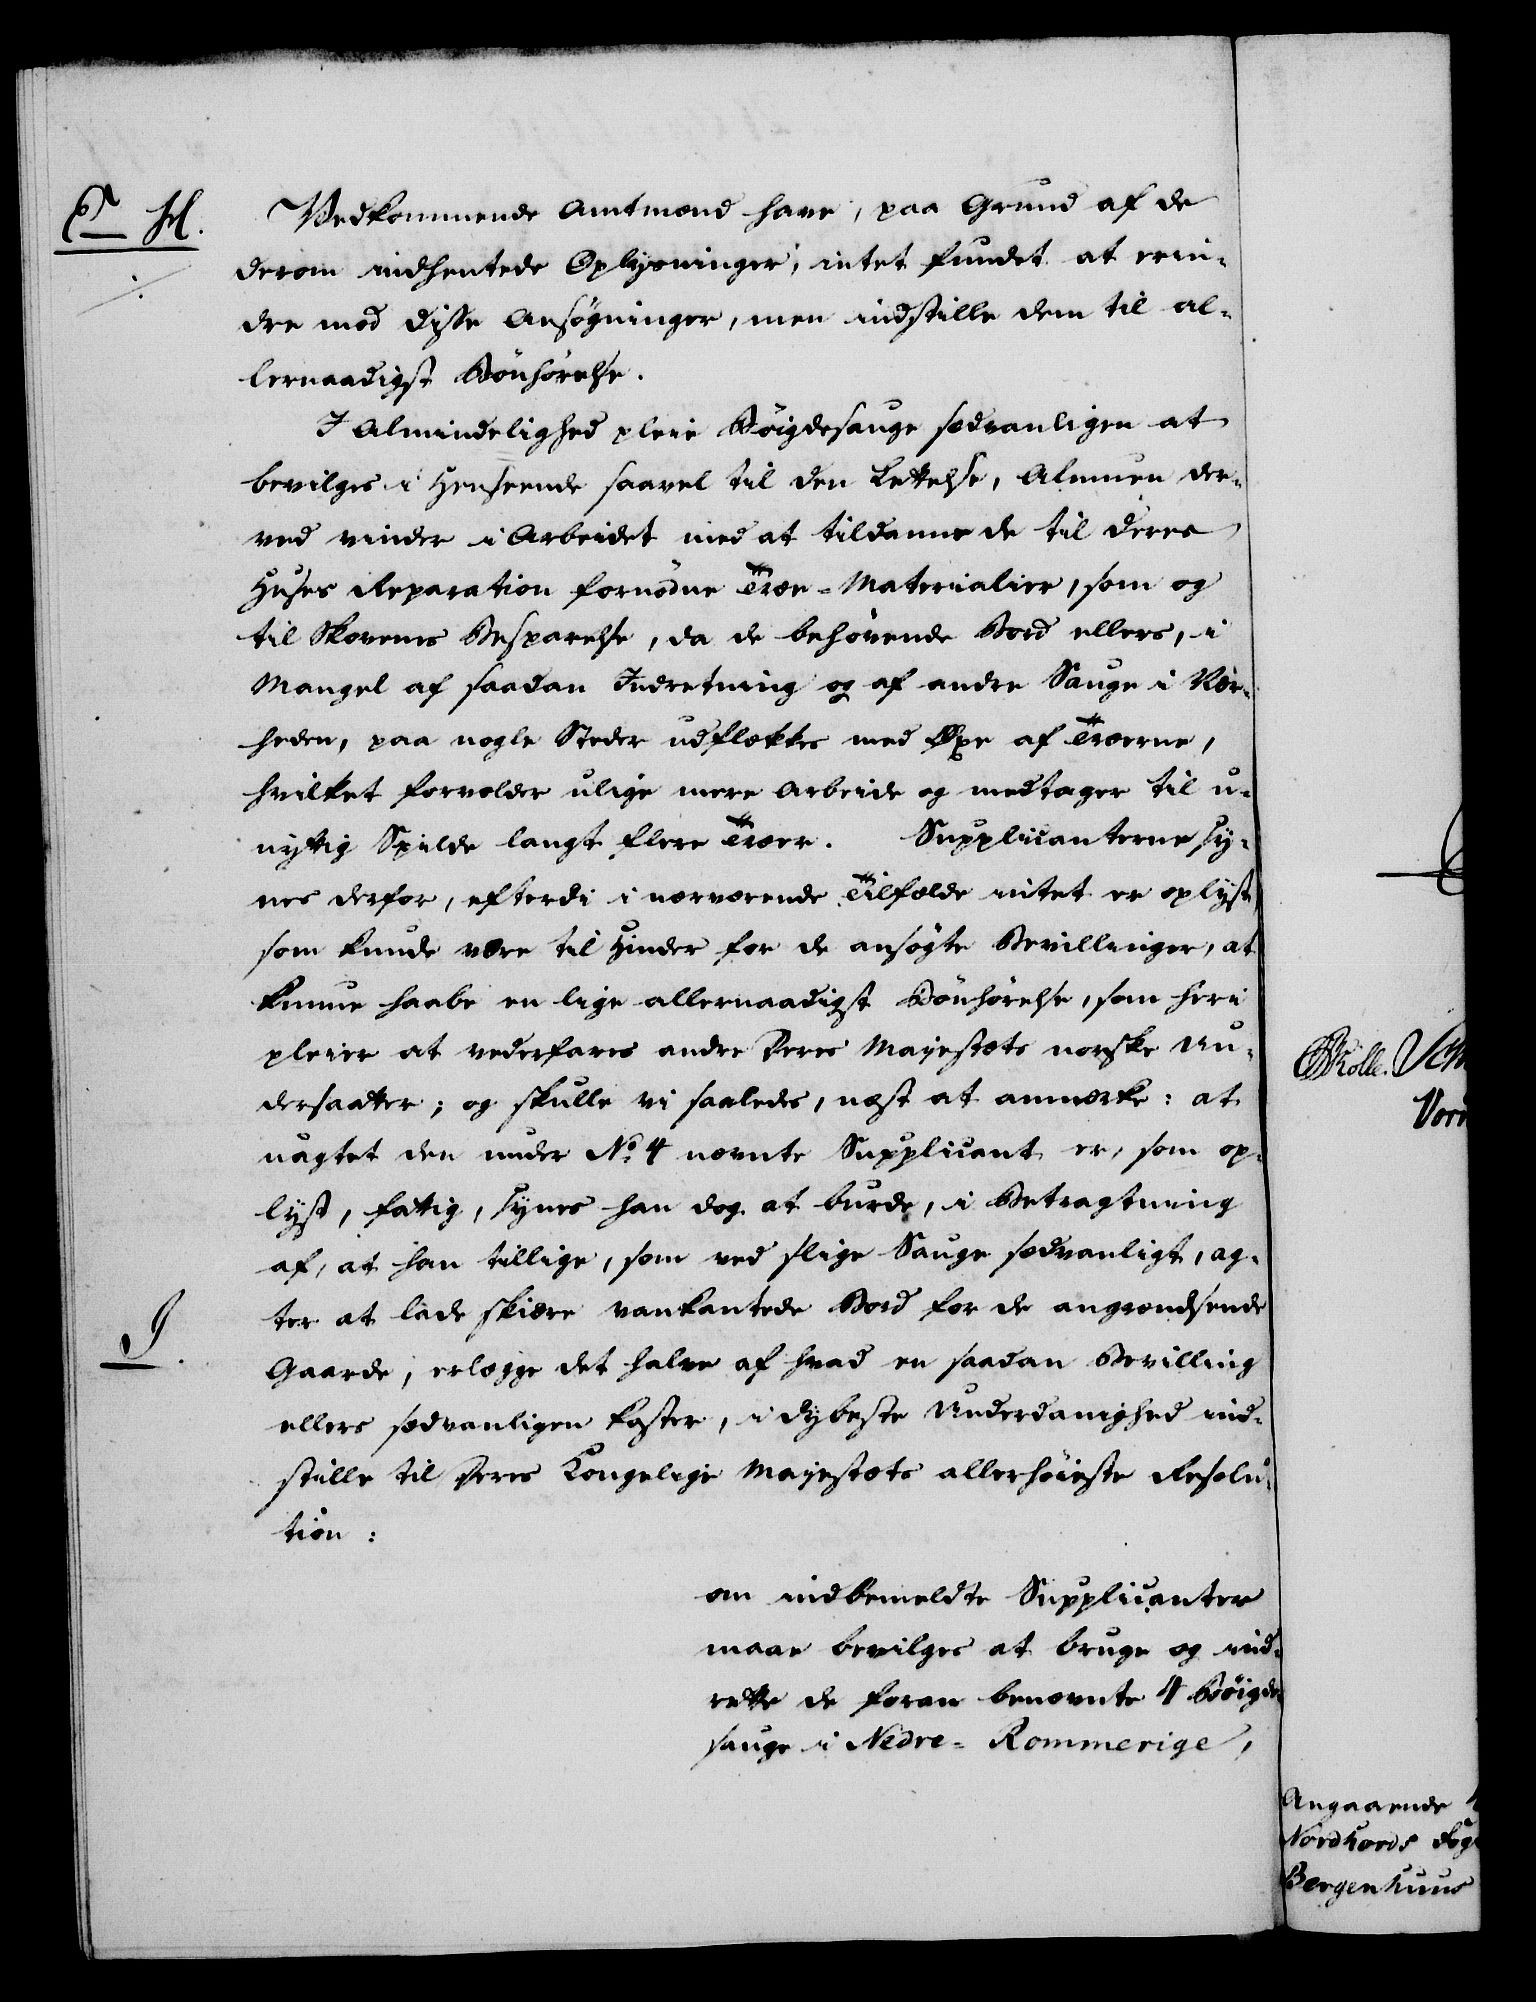 E H.
Vedkommende Amtmænd have, paa Grund af de
derom indhentede Oplysninger, intet fundet at erin-
dre mod disse Ansøgninger, men indstille dem til al-
lernaadigst Bönhörelse.
I Almindelighed pleie Böigdesauge sædvanligen at
bevilges i Henseende saavel til den Lettelse, Almuen der-
ved vinder i Arbeidet med at tildanne de til deres
Huses Reparation fornödne Træe-Materialier, som og
til Skovenes Besparelse, da de behövende Bord ellers, i
Mangel af saadan Indretning og af andre Sauge i Nær-
heden, paa nogle Steder udflækkes med Öxe af Træerne,
hvilket forvolder ulige mere Arbeide og medtager til u-
nyttig Spilde langt flere Træer. Supplicanterne sy-
nes derfor, efterdi i nærværende Tilfælde intet er oplyst,
som kunde være til Hinder for de ansögte Bevillinger, at
kunne haabe en lige allernaadigst Bönhörelse, som heri
pleier at vederfares andre Deres Majestæts norske Un-
dersaatter; og skulle vi saaledes, næst at anmærke: at
uagtet den under No. 4 nævnte Supplicant er, som op-
lyst, fattig, synes han dog at burde, i Betragtning
af, at han tillige, som ved slige Sauge sædvanligt, ag-
ter at lade skiære vankantede Bord for de angrændsende
I.
Gaarde, erlægge det halve af hvad en saadan Bevilling
ellers sædvanligen koster, i dybeste Underdanighed ind-
stille til Deres Kongelige Majestæts allerhöieste Resolu-
tion:
om indbemeldte Supplicanter
maae bevilges at bruge og ind-
rette de foran benævnte 4 Böigde-
sauge i Nedre-Rommerige,
Angaaende
Nordhords Fog
Bergenhuus